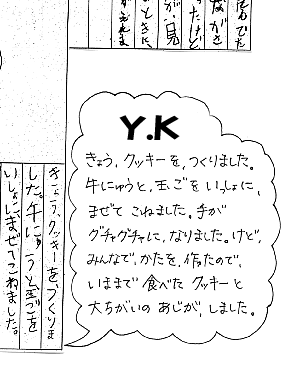 Y.K
きょう、クッキーを、つくりました。
牛にゅうと、玉ごをいっしょに、
まぜて こねました。手が
グチャグチャに、なりました。けど、
みんなで、かたを、作ったので、
いままで 食べた クッキーと
大ちがいの あじが、しました。
きょう、クッキーを、つくりま
した。牛にゅうと玉ごを
いしょに、まぜてこねました。